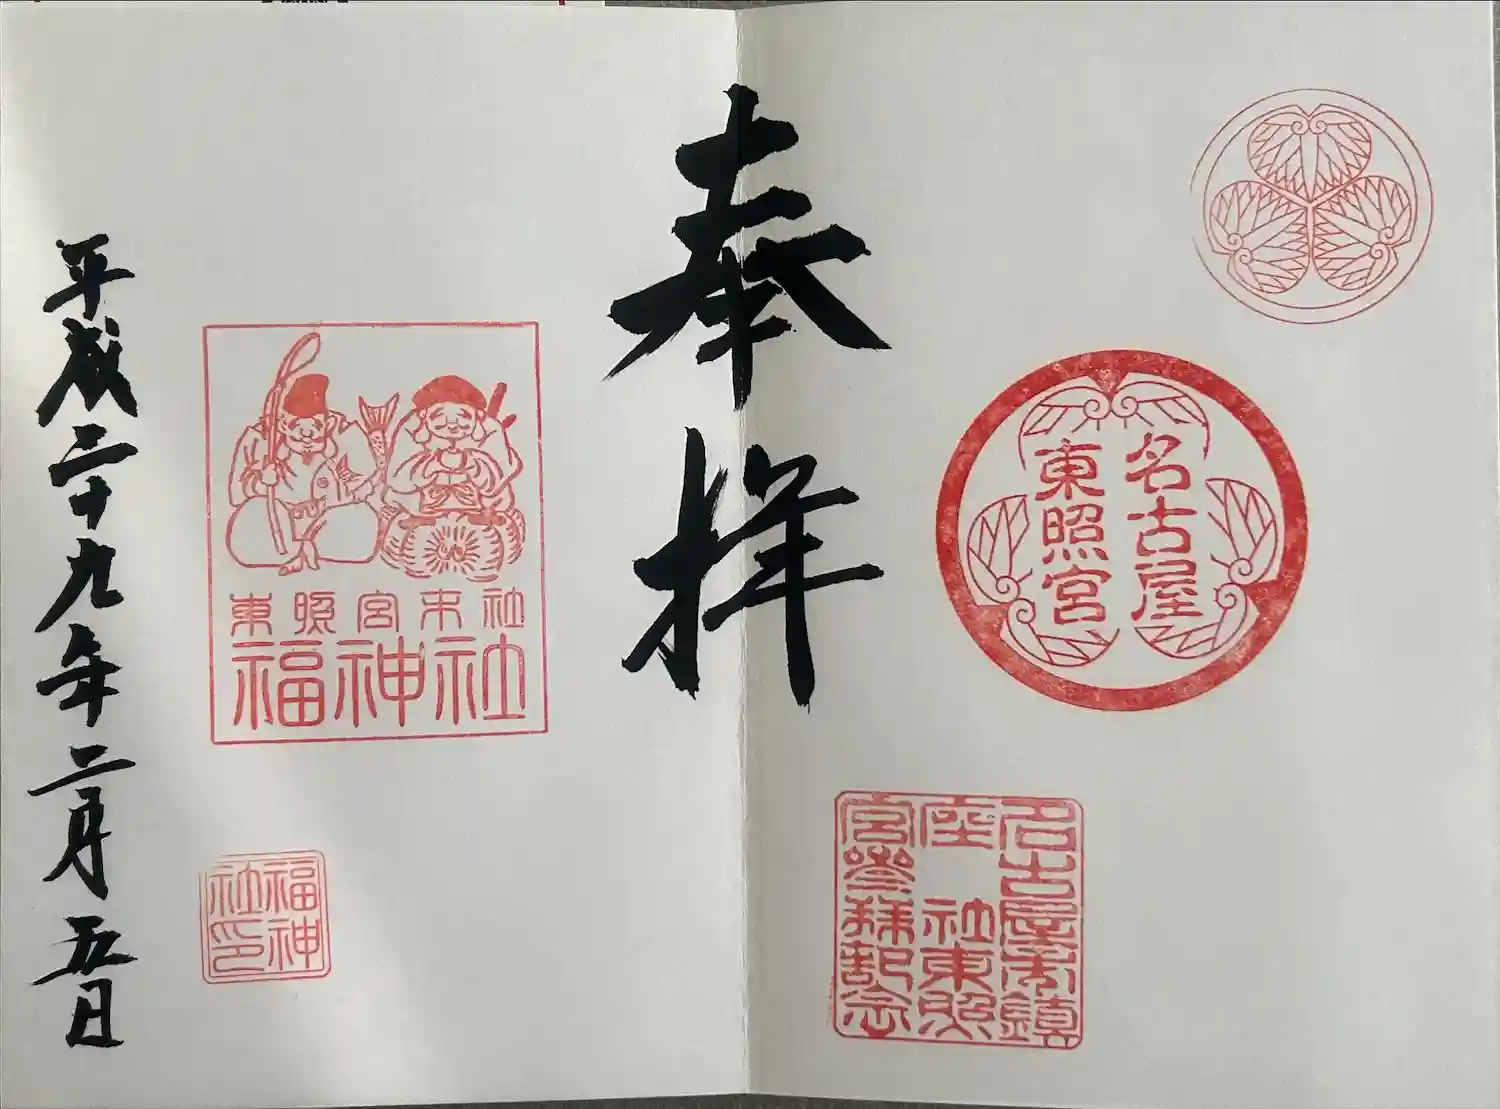 名古屋
東照宮
名古屋市鎮
座 社東照
宮參拜記念
奉拝
東照宮末社
福神社
福神
社印
平成二十九年二月五日